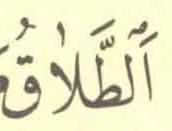 اَلطَّلَاقُ